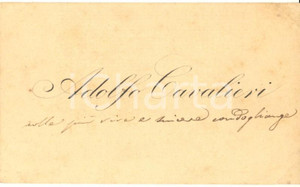 Adolfo Cavalieri
colle più vive e sincere condoglianze